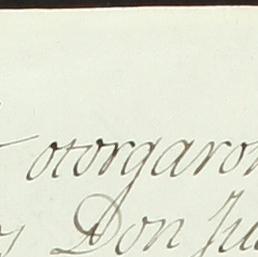 otorgaron
Don Ju